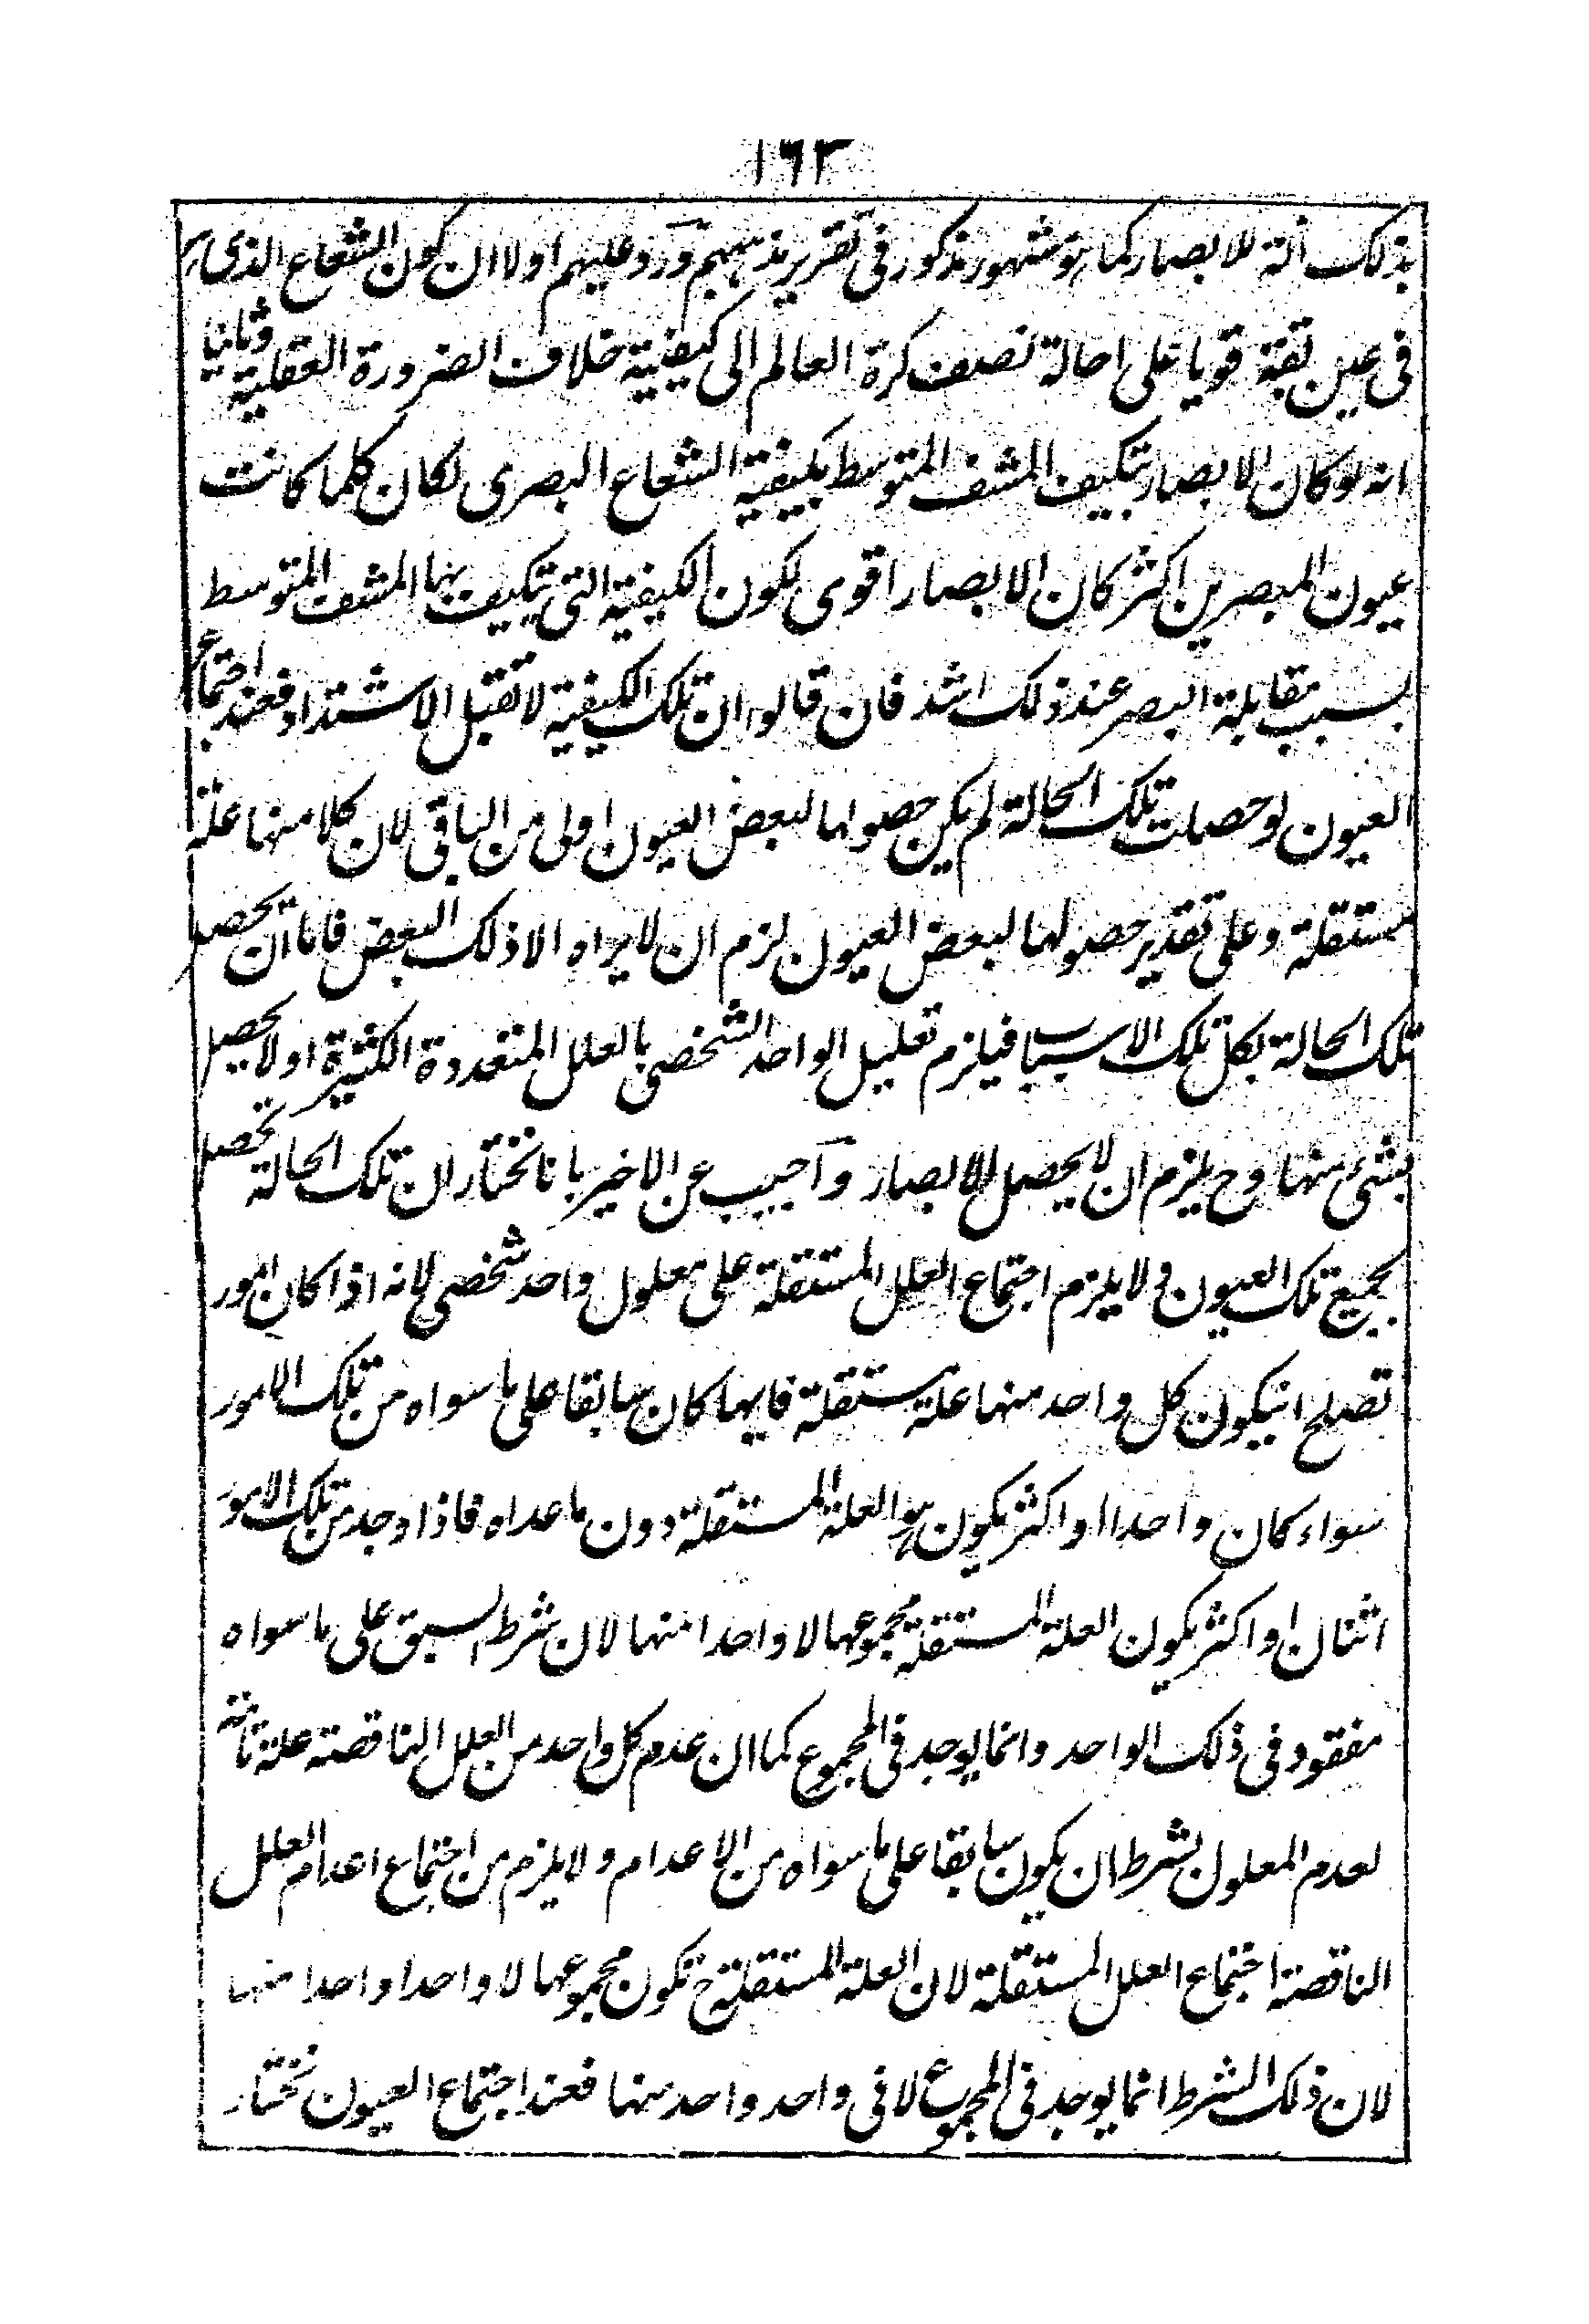 ١٦٣
بذلك آلة للابصار كما هو مشهور مذكور فى تقرير مذهبهم وَرد عليهم اولا ان كون الشعاع الذى
فى عين بقة قويا على احالة نصف كرة العالم الى كيفية خلاف الضرورة العقلية وثانيا
انه لو كان الابصار بتكيف المشف المتوسط بكيفية الشعاع البصرى لكان كلما كانت
عيون المبصرين اكثر كان الابصار اقوى لكون الكيفية التى يتكيف بها المشف المتوسط
بسبب مقابلة البصر عند ذلك اشد فان قالوا ان تلك الكيفية لا تقبل الاشتداد فعند اجتماع
العيون لو حصلت تلك الحالة لم يكن حصولها لبعض العيون اولى من الباقى لان كلا منها علة
مستقلة وعلى تقدير حصولها لبعض العيون لزم ان لا يراه الا ذلك البعض فاما ان يحصل
تلك الحالة بكل تلك الاسباب فيلزم تعليل الواحد الشخصى بالعلل المتعددة الكثيرة او لا يحصل
بشىء منها وح يلزم ان لا يحصل الابصار وآجيب عن الاخير بانا نختار ان تلك الحالة تحصل
بجميع تلك العيون ولا يلزم اجتماع العلل المستقلة على معلول واحد شخصى لانه اذا كان امور
تصلح انيكون كل واحد منها علة مستقلة فايها كان سابقا على ما سواه من تلك الامور
سواء كان واحدا او اكثر يكون هو العلة المستقلة دون ما عداه فاذا وجد من تلك الامور
اثنان او اكثر يكون العلة المستقلة مجموعها لا واحدا منها لان شرط السبق على ما سواه
مفقود فى ذلك الواحد وانما يوجد فى المجموع كما ان عدم كل واحد من العلل الناقصة علة تامة
لعدم المعلول بشرط ان يكون سابقا على ما سواه من الاعدام ولا يلزم من اجتماع اعدام العلل
الناقصة اجتماع العلل المستقلة لان العلة المستقلة ح تكون مجموعها لا واحدا واحدا منها
لان ذلك الشرط انما يوجد فى المجموع لا فى واحد واحد منها فعند اجتماع العيون نختار